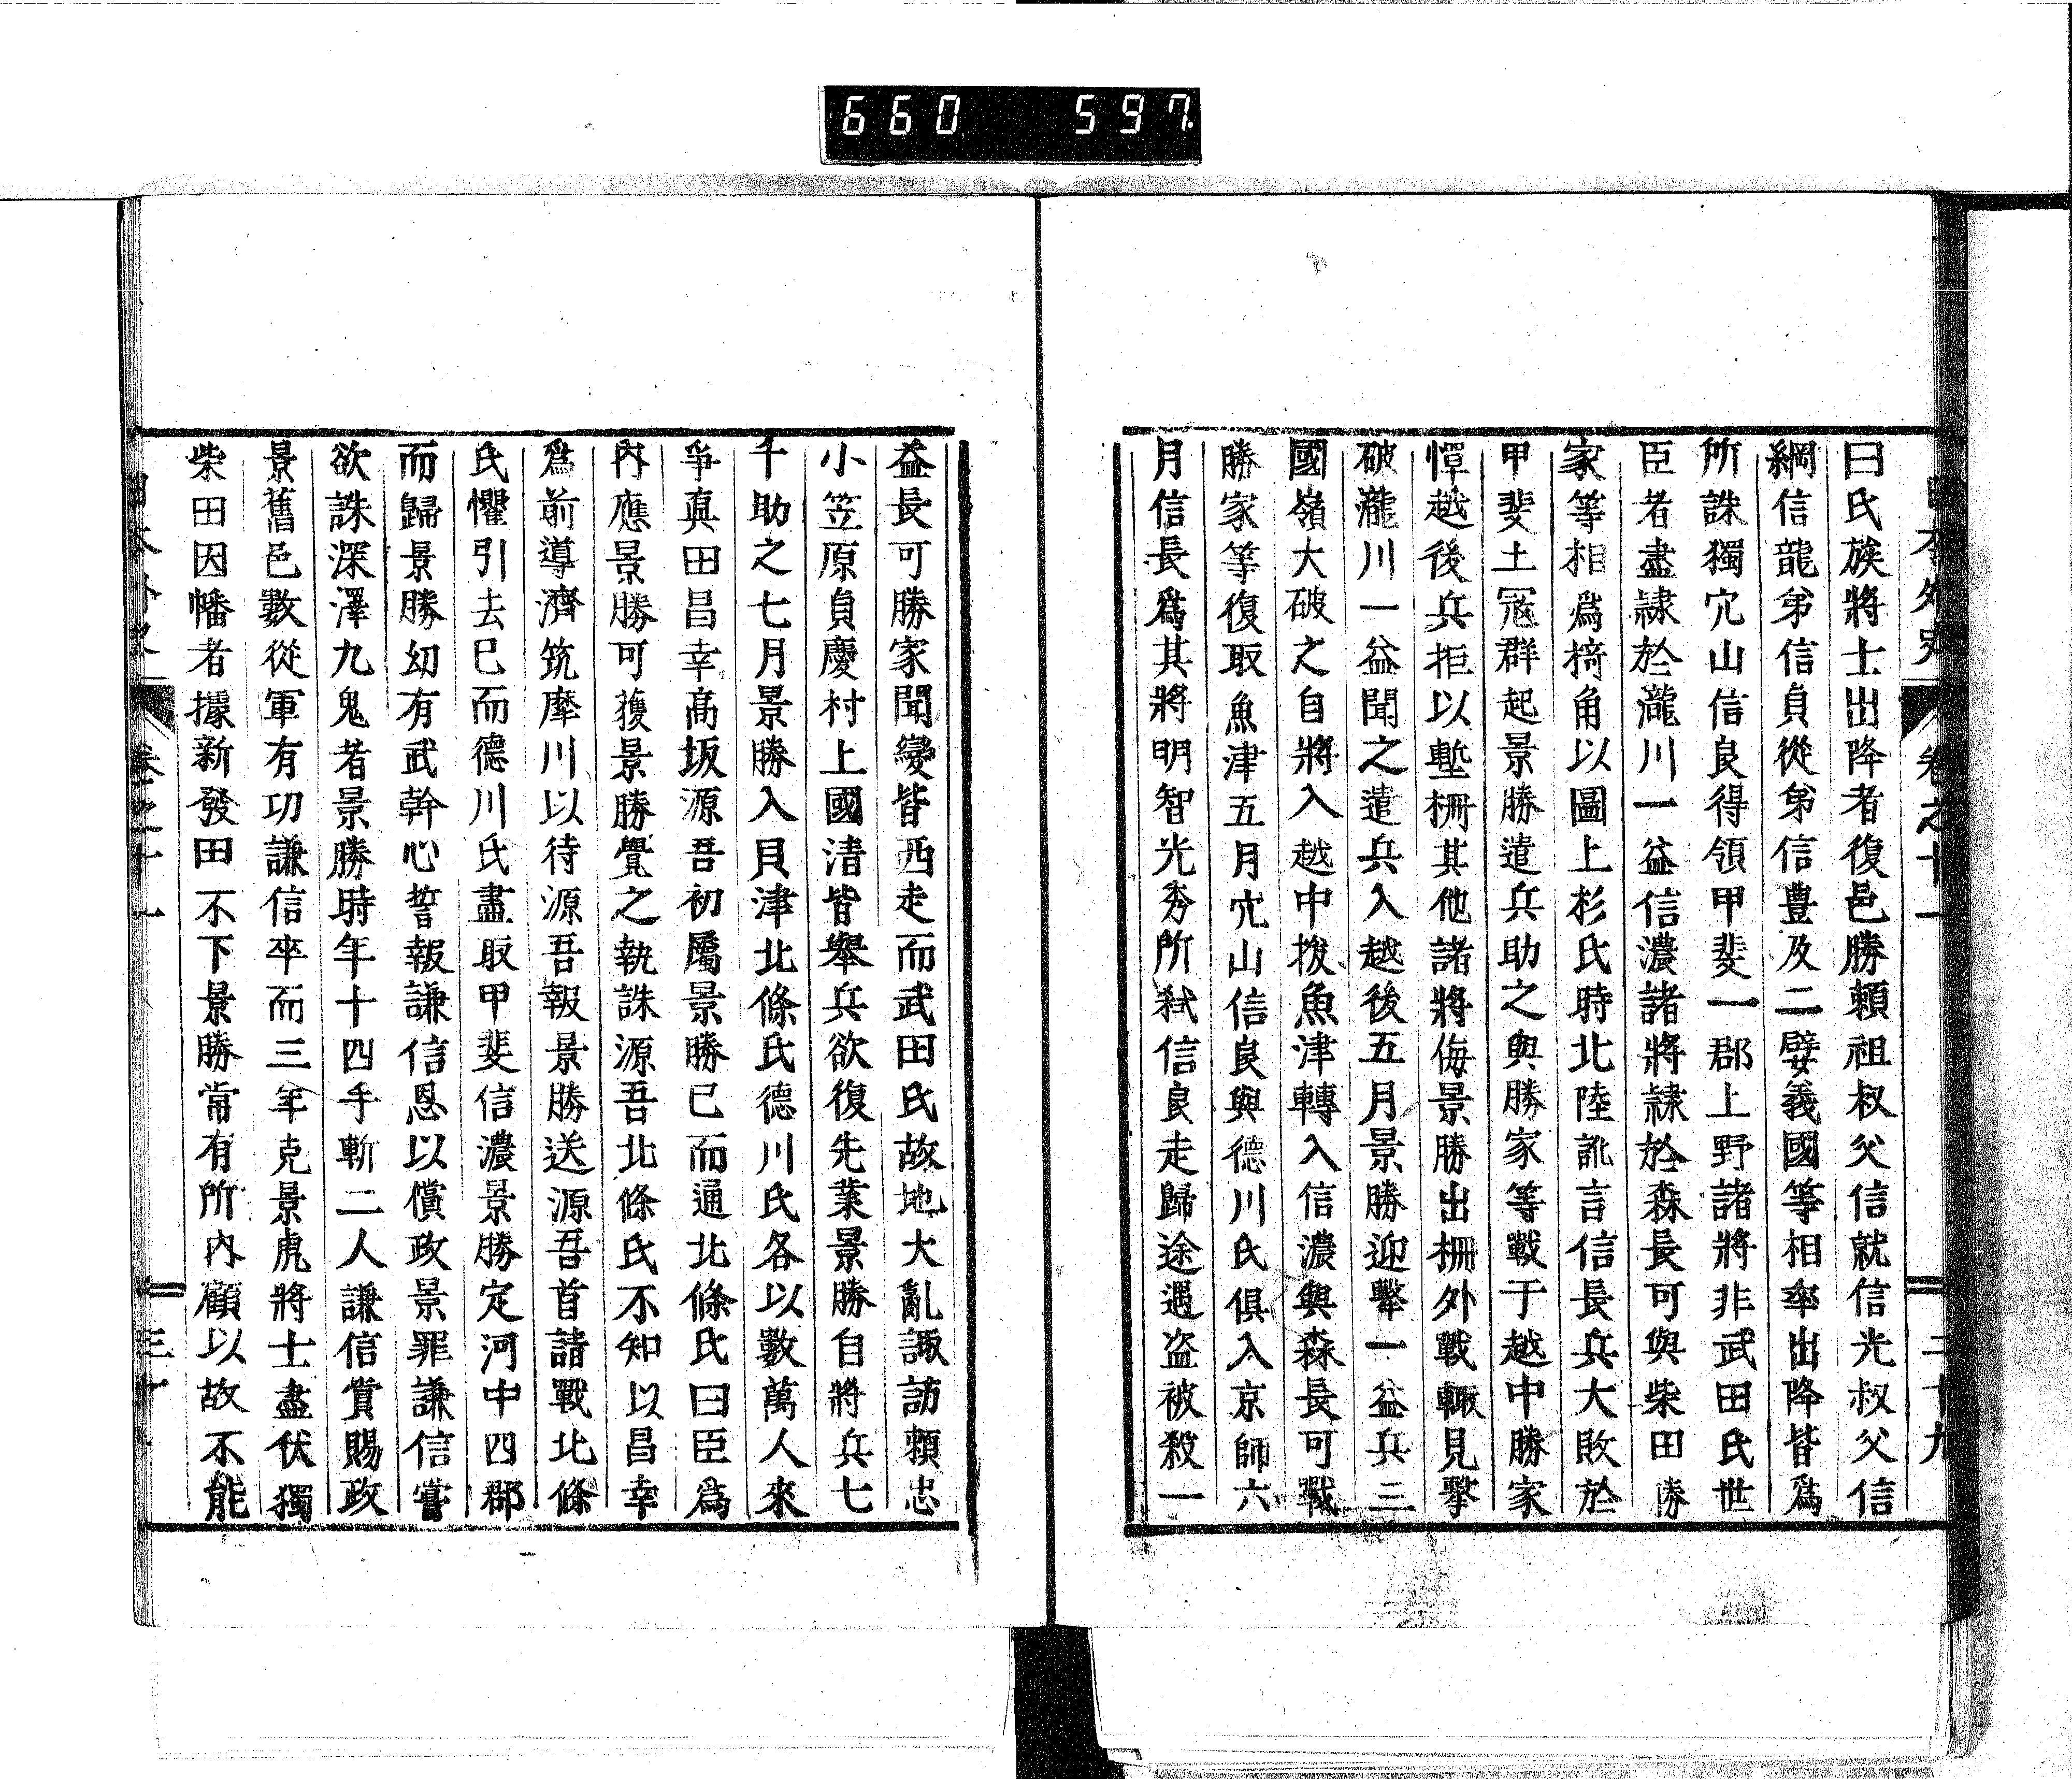 660 597
日本外史 卷之十一 二十九
曰氏族將士出降者復邑勝賴祖叔父信就信光叔父信
綱信龍弟信貞從弟信豊及二嬖義國等相率出降皆爲
所誅獨穴山信良得領甲斐一郡上野諸將非武田氏世
臣者盡隷於瀧川一益信濃諸將隷於森長可與柴田勝
家等相爲掎角以圖上杉氏時北陸訛言信長兵大敗於
甲斐土冦群起景勝遣兵助之與勝家等戰于越中勝家
憚越後兵拒以塹柵其他諸將侮景勝出柵外戰輙見擊
破瀧川一益聞之遣兵入越後五月景勝迎擊一益兵三
國嶺大破之自將入越中拔魚津轉入信濃與森長可戰
勝家等復取魚津五月穴山信良與德川氏俱入京師六
月信長爲其將明智光秀所弒信良走歸途遇盜被殺一
益長可勝家聞變皆西走而武田氏故地大亂諏訪賴忠
小笠原貞慶村上國清皆舉兵欲復先業景勝自將兵七
千助之七月景勝入貝津北條氏德川氏各以數萬人來
爭眞田昌幸高坂源吾初屬景勝已而通北條氏曰臣爲
內應景勝可獲景勝覺之執誅源吾北條氏不知以昌幸
爲前導濟筑摩川以待源吾報景勝送源吾首請戰北條
氏懼引去已而德川氏盡取甲斐信濃景勝定河中四郡
而歸景勝幼有武幹心誓報謙信恩以償政景罪謙信嘗
欲誅深澤九鬼者景勝時年十四手斬二人謙信賞賜政
景舊邑數從軍有功謙信卒而三年克景虎將士盡伏獨
柴田因幡者據新發田不下景勝常有所內顧以故不能
日本外史 卷之十一 三十